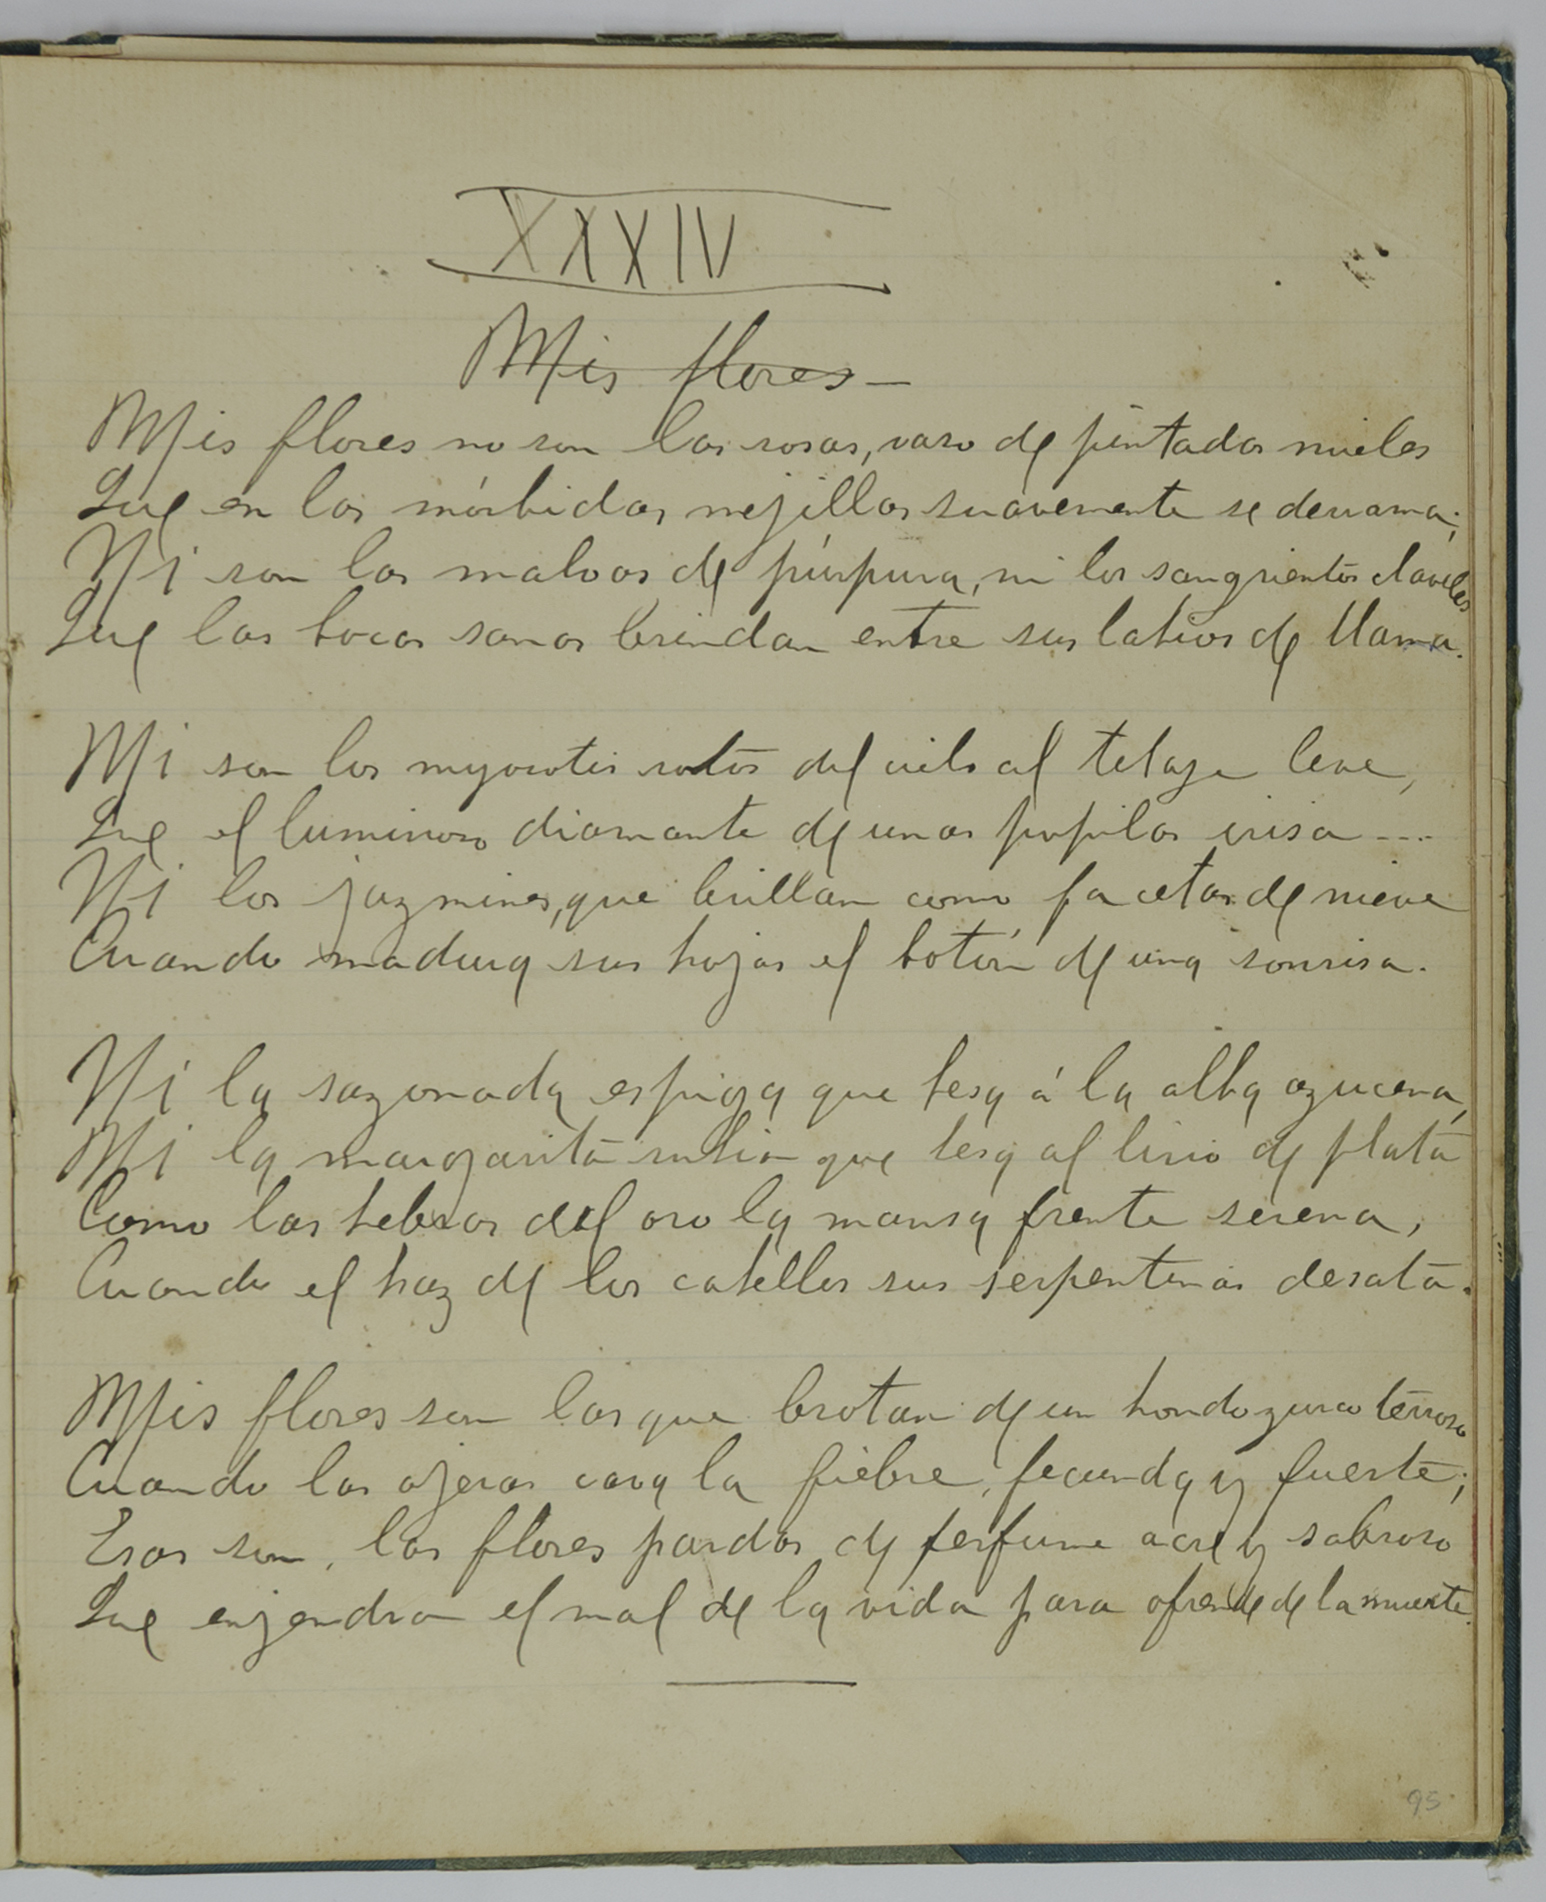 XXXIV
Mis flores—
Mis flores no son las rosas, vaso de pintadas mieles
Que en las mórbidas mejillas suavemente se derrama;
Ni son las malvas de púrpura, ni los sangrientos claveles
Que las bocas sanas brindan entre sus labios de llama.
Ni son los myosotis rotos del cielo al telaje leve,
Que el luminoso diamante de unas pupilas irisa ...
Ni los jazmines, que brillan como facetas de nieve
Cuando madura sus hojas el botón de una sonrisa.
Ni la sazonada espiga que besa á la alba azucena,
Ni la margarita rubia que besa al lirio de plata
Como las hebras del oro la mansa frente serena,
Cuando el haz de los cabellos sus serpentinas desata.
Mis flores son las que brotan de un hondo zurco terroso
Cuando las ojeras cava la fiebre, fecunda y fuerte;
Esas son, las flores pardas de perfume acre y sabroso
Que enjendra el mal de la vida para ofrenda de la muerte.
95